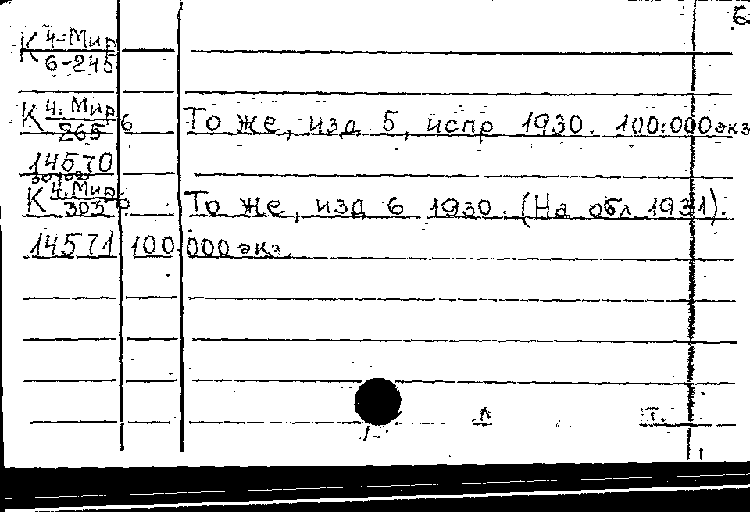 6
К 4-Мир
6-245
К 4. Мир 6 То же, изд 5, испр 1930. 100.000 экз
265
14570
К 4. Мир 6 То же, изд 6 1930. (На обл 1931).
303
14571 100.000 экз.
л п.